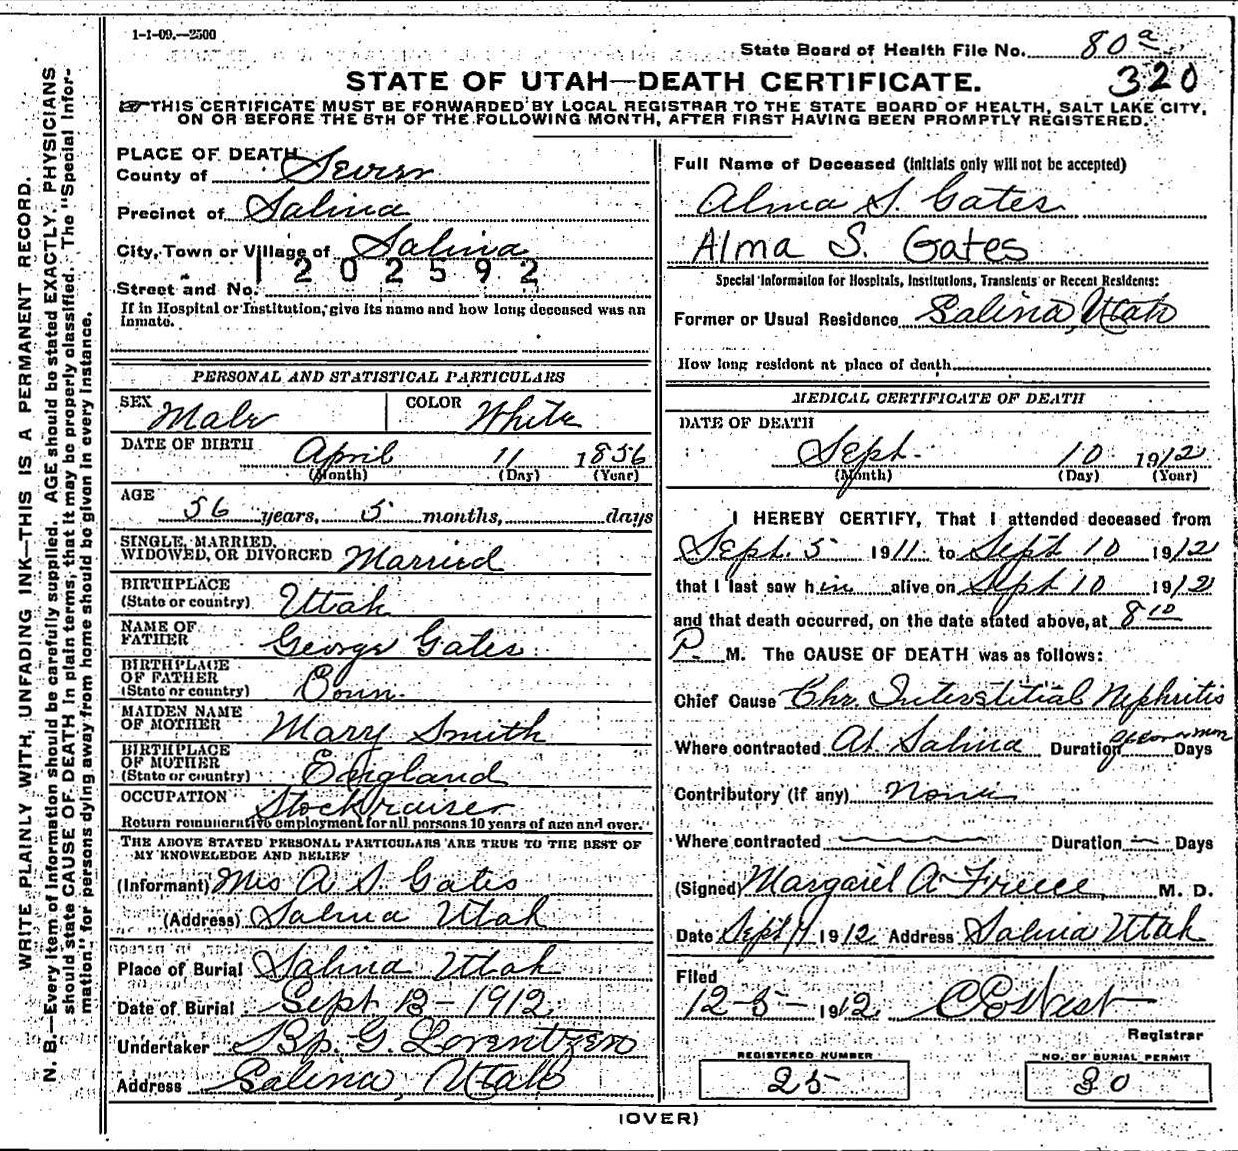 1-1-09.—2500
State Board of Health File No. 80a
320
STATE OF UTAH—DEATH CERTIFICATE.
☞THIS CERTIFICATE MUST BE FORWARDED BY LOCAL REGISTRAR TO THE STATE BOARD OF HEALTH, SALT LAKE CITY,
ON OR BEFORE THE 5TH OF THE FOLLOWING MONTH, AFTER FIRST HAVING BEEN PROMPTLY REGISTERED.
WRITE PLAINLY WITH UNFADING INK—THIS IS A PERMANENT RECORD.
N. B.—Every item of information should be carefully supplied. AGE should be stated EXACTLY. PHYSICIANS
should state CAUSE OF DEATH in plain terms, that it may be properly classified. The "Special Infor-
mation" for persons dying away from home should be given in every instance.
PLACE OF DEATH
County of Sevier
Precinct of Salina
City, Town or Village of Salina
1202592
Street and No.
If in Hospital or Institution, give its name and how long deceased was an
inmate.
PERSONAL AND STATISTICAL PARTICULARS
SEX Male COLOR White
DATE OF BIRTH April 11 1856
(Month) (Day) (Year)
AGE
56 years, 5 months, days
SINGLE, MARRIED,
WIDOWED, OR DIVORCED Married
BIRTHPLACE
(State or country) Utah
NAME OF
FATHER George Gates
BIRTHPLACE
OF FATHER
(State or country) Conn.
MAIDEN NAME
OF MOTHER Mary Smith
BIRTHPLACE
OF MOTHER
(State or country) England
OCCUPATION Stockraiser
Return remunerative employment for all persons 10 years of age and over.
THE ABOVE STATED PERSONAL PARTICULARS ARE TRUE TO THE BEST OF
MY KNOWLEDGE AND BELIEF
(Informant) Mrs A. S. Gates
(Address) Salina Utah
Place of Burial Salina Utah
Date of Burial Sept 13-1912
Undertaker Bp. G. Lorentzen
Address Salina, Utah
Full Name of Deceased (Initials only will not be accepted)
Alma S. Gates
Alma S. Gates
Special Information for Hospitals, Institutions, Transients or Recent Residents:
Former or Usual Residence Salina, Utah
How long resident at place of death
MEDICAL CERTIFICATE OF DEATH
DATE OF DEATH
Sept. 10 1912
(Month) (Day) (Year)
I HEREBY CERTIFY, That I attended deceased from
Sept. 5 1911 to Sept 10 1912
that I last saw him alive on Sept 10 1912
and that death occurred, on the date stated above, at 8 10
P. M. The CAUSE OF DEATH was as follows:
Chief Cause Chr. Interstitial Nephritis
Where contracted At Salina Duration Days
Contributory (if any) None
Where contracted Duration — Days
(Signed) Margaret A Freece M. D.
Date Sept 1912 Address Salina Utah
Filed
12-5- 1912 C E West
Registrar
REGISTERED NUMBER
25
NO. OF BURIAL PERMIT
30
(OVER)